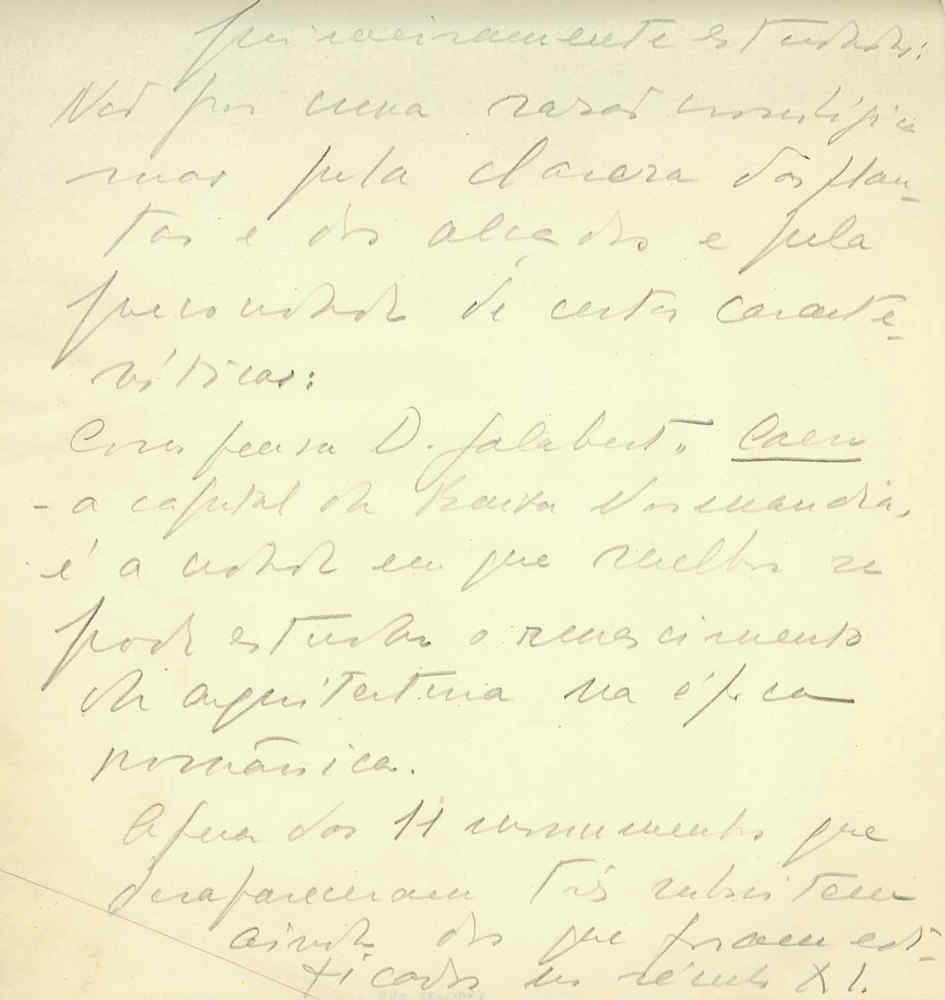 primeiramente estudados:
Não por uma razão cronológica
mas pela clareza das plan-
tas e dos alçados e pela
precocidade de certas caracte-
rísticas:
Como pensa D. Jalabert: Caen
- a capital da Baixa Normandia,
é a cidade em que melhor se
pode estudar o renascimento
da arquitectura na época
românica.
Apesar dos 11 monumentos que
desapareceram três subsistem
ainda dos que foram edi-
ficados no século XI.